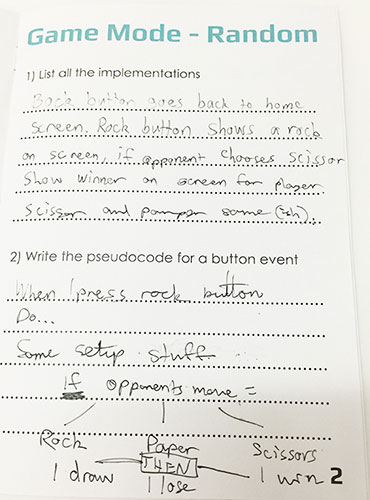 Game Mode - Random
1) List all the implementations
Back button goes back to home
screen. Rock button shows a rock
on screen, if opponent chooses scissor
show winner on screen for player
scissor and pamper same (ish).
2) Write the pseudocode for a button event
When I press rock button
Do...
Some setup stuff
If opponents move =
Rock Paper Scissors
THEN
I draw I lose I win
2